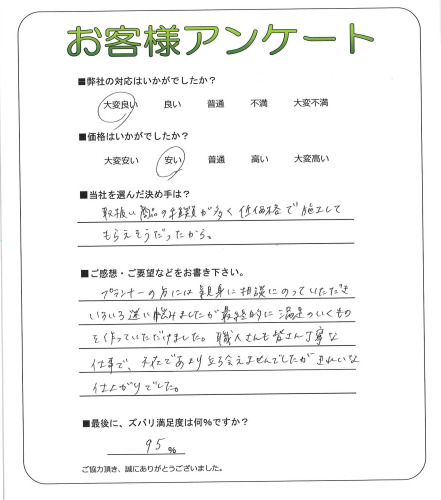 お客様アンケート
■弊社の対応はいかがでしたか？
大変良い 良い 普通 不満 大変不満
■価格はいかがでしたか？
大変安い 安い 普通 高い 大変高い
■当社を選んだ決め手は？
取扱い商品の種類が多く低価格で施工して
もらえそうだったから。
■ご感想・ご要望などをお書き下さい。
プランナーの方には親身に相談にのっていただき
いろいろ迷い悩みましたが最終的に満足のいくもの
を作っていただけました。職人さんも皆さん丁寧な
仕事で、不在であまり立ち会えませんでしたがきれいな
仕上がりでした。
■最後に、ズバリ満足度は何％ですか？
95 %
ご協力頂き、誠にありがとうございました。